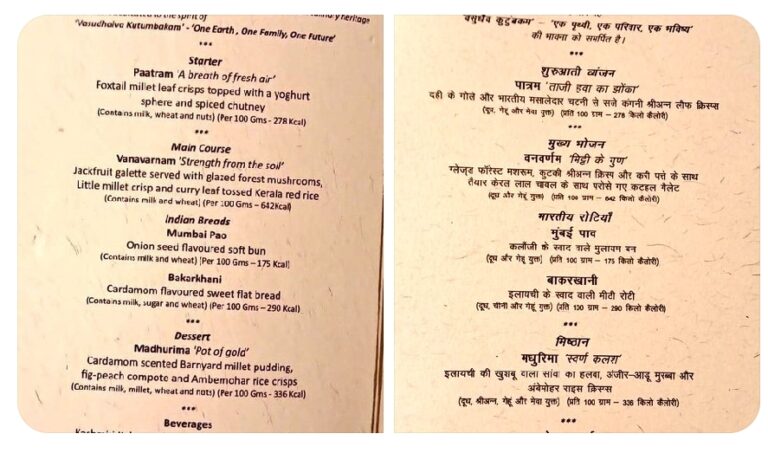 the spirit of
'Vasudhaiva Kutumbakam' - 'One Earth, One Family, One Future'
***
Starter
Paatram 'A breath of fresh air'
Foxtail millet leaf crisps topped with a yoghurt
sphere and spiced chutney
(Contains milk, wheat and nuts) (Per 100 Gms - 278 Kcal)
***
Main Course
Vanavarnam 'Strength from the soil'
Jackfruit galette served with glazed forest mushrooms,
Little millet crisp and curry leaf tossed Kerala red rice
(Contains milk and wheat) (Per 100 Gms – 642Kcal)
Indian Breads
Mumbai Pao
Onion seed flavoured soft bun
(Contains milk and wheat) (Per 100 Gms – 175 Kcal)
Bakarkhani
Cardamom flavoured sweet flat bread
(Contains milk, sugar and wheat) (Per 100 Gms – 290 Kcal)
***
Dessert
Madhurima 'Pot of gold'
Cardamom scented Barnyard millet pudding,
fig-peach compote and Ambemohar rice crisps
(Contains milk, millet, wheat and nuts) (Per 100 Gms - 336 Kcal)
***
Beverages
वसुधैव कुटुंबकम' – 'एक पृथ्वी, एक परिवार, एक भविष्य'
की भावना को समर्पित है।
***
शुरुआती व्यंजन
पात्रम 'ताजी हवा का झोंका'
दही के गोले और भारतीय मसालेदार चटनी से सजे कंगनी श्रीअन्न लीफ क्रिस्प्स
(दूध, गेहूं और मेवा युक्त) (प्रति 100 ग्राम – 278 किलो कैलोरी)
***
मुख्य भोजन
वनवर्णम 'मिट्टी के गुण'
ग्लेज्ड फॉरेस्ट मशरूम, कुटकी श्रीअन्न क्रिस्प और करी पत्ते के साथ
तैयार केरल लाल चावल के साथ परोसे गए कटहल गैलेट
(दूध और गेहूं युक्त) (प्रति 100 ग्राम – 642 किलो कैलोरी)
भारतीय रोटियाँ
मुंबई पाव
कलौंजी के स्वाद वाले मुलायम बन
(दूध और गेहूं युक्त) (प्रति 100 ग्राम – 175 किलो कैलोरी)
बाकरखानी
इलायची के स्वाद वाली मीठी रोटी
(दूध, चीनी और गेहूं युक्त) (प्रति 100 ग्राम – 290 किलो कैलोरी)
***
मिष्ठान
मधुरिमा 'स्वर्ण कलश'
इलायची की खुशबू वाला सांवा का हलवा, अंजीर-आडू मुरब्बा और
अंबेमोहर राइस क्रिस्प्स
(दूध, श्रीअन्न, गेहूं और मेवा युक्त) (प्रति 100 ग्राम – 336 किलो कैलोरी)
***